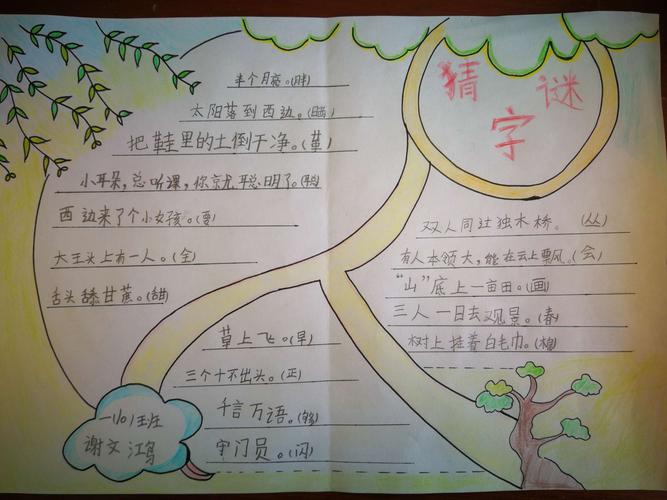 猜字谜
半个月亮。(胖)
太阳落到西边。(晒)
把鞋里的土倒干净。(革)
小耳朵,总听课,你就聪明了。(聪)
西边来了个小女孩。(要)
大王头上有一人。(全)
舌头舔甘蔗。(甜)
双人同过独木桥。(丛)
有人本领大,能在云上飘。(会)
“山”底上一亩田。(画)
三人一日去观景。(春)
树上挂着白毛巾。(棉)
草上飞。(早)
三个十不出头。(正)
千言万语。(够)
守门员。(闪)
一(10)班
谢文鸿